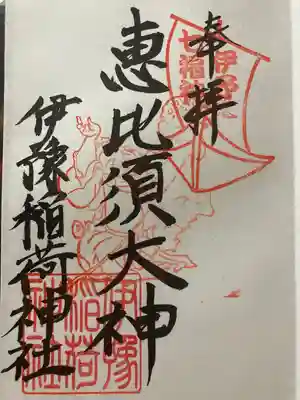 奉拝
恵比須大神
伊豫稲荷神社
伊豫
七福神
伊豫
稲荷
神社